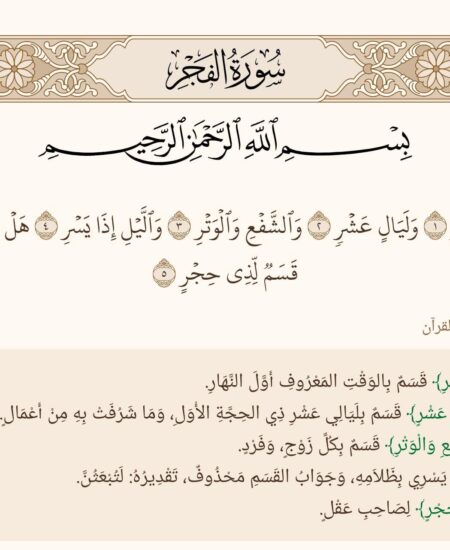 سُورَةُ الفَجۡرِ
بِسۡمِ ٱللَّهِ ٱلرَّحۡمَٰنِ ٱلرَّحِيمِ
١ وَلَيَالٍ عَشۡرٖ ٢ وَٱلشَّفۡعِ وَٱلۡوَتۡرِ ٣ وَٱلَّيۡلِ إِذَا يَسۡرِ ٤ هَلۡ
قَسَمٞ لِّذِي حِجۡرٍ ٥
القرآن
رِ﴾ قَسَمٌ بِالوَقْتِ المَعْرُوفِ أوَّلَ النَّهَارِ.
عَشْرٍ﴾ قَسَمٌ بِلَيَالِي عَشْرِ ذِي الحِجَّةِ الأوَلِ، وَمَا شَرُفَتْ بِهِ مِنْ أعْمَالٍ.
عِ وَالْوَتْرِ﴾ قَسَمٌ بِكُلِّ زَوْجٍ، وَفَرْدٍ.
يَسْرِي بِظَلَامِهِ، وَجَوَابُ القَسَمِ مَحْذُوفٌ، تَقْدِيرُهُ: لَتُبْعَثُنَّ.
حِجْرٍ﴾ لِصَاحِبِ عَقْلٍ.